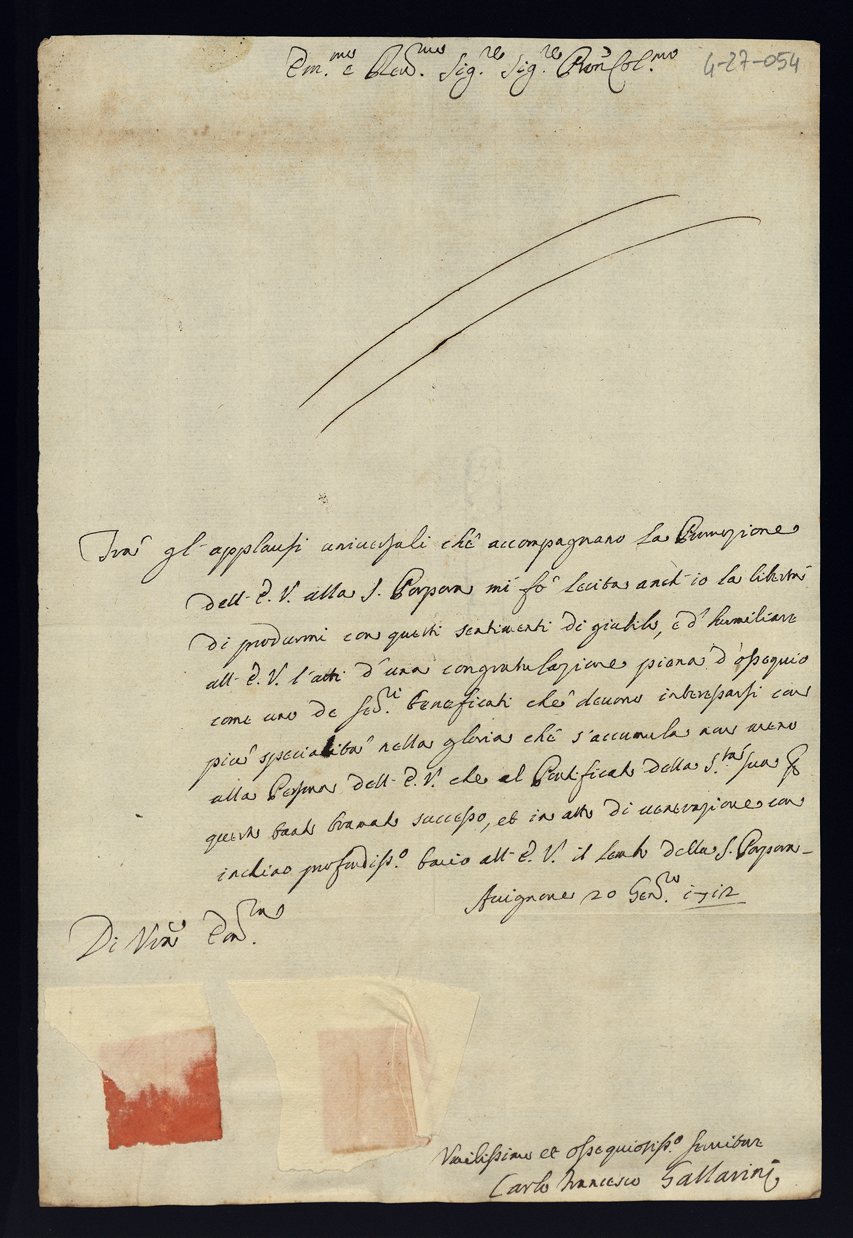 Em.mo e Rev.mo Sig.re Sig.re Pron Col.mo
4-27-054
Trà gl'applausi universali chè accompagnano la Promozione
dell'E. V. alla S. Porpora mi fò lecita anch'io la libertà
di produrmi con questi sentimenti di giubilo, e d'humiliare
all'E. V. l'atti d'una congratulazione piena d'ossequio
come uno de Ser.ri beneficati chè devono interessarsi con
più specialità nella gloria chè s'accumula non meno
alla Persona dell'E. V. che al Pontificato della S.tà sua
questo tanto bramato successo, et in atto di venerazione con
inchino profondiss.o bacio all'E. V. il lembo della S. Porpora
Avignone 20 Gen.ro 1712
Di Vra Em.za
Umilissimo et ossequiosiss.o servitore
Carlo Francesco Gallarini